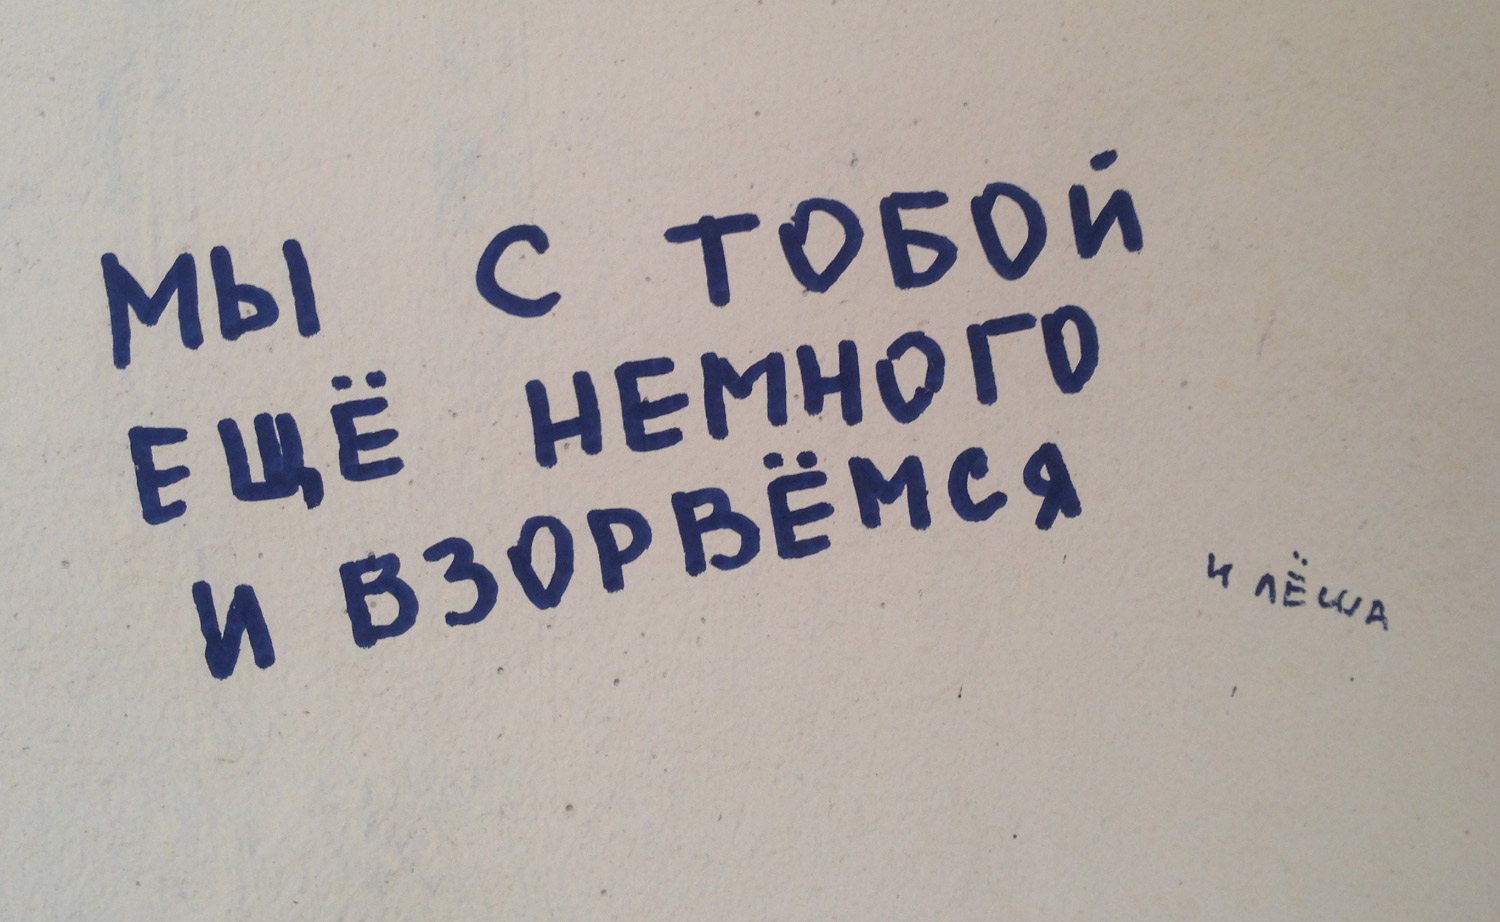 МЫ С ТОБОЙ
ЕЩЁ НЕМНОГО
И ВЗОРВЁМСЯ
И ЛЁША